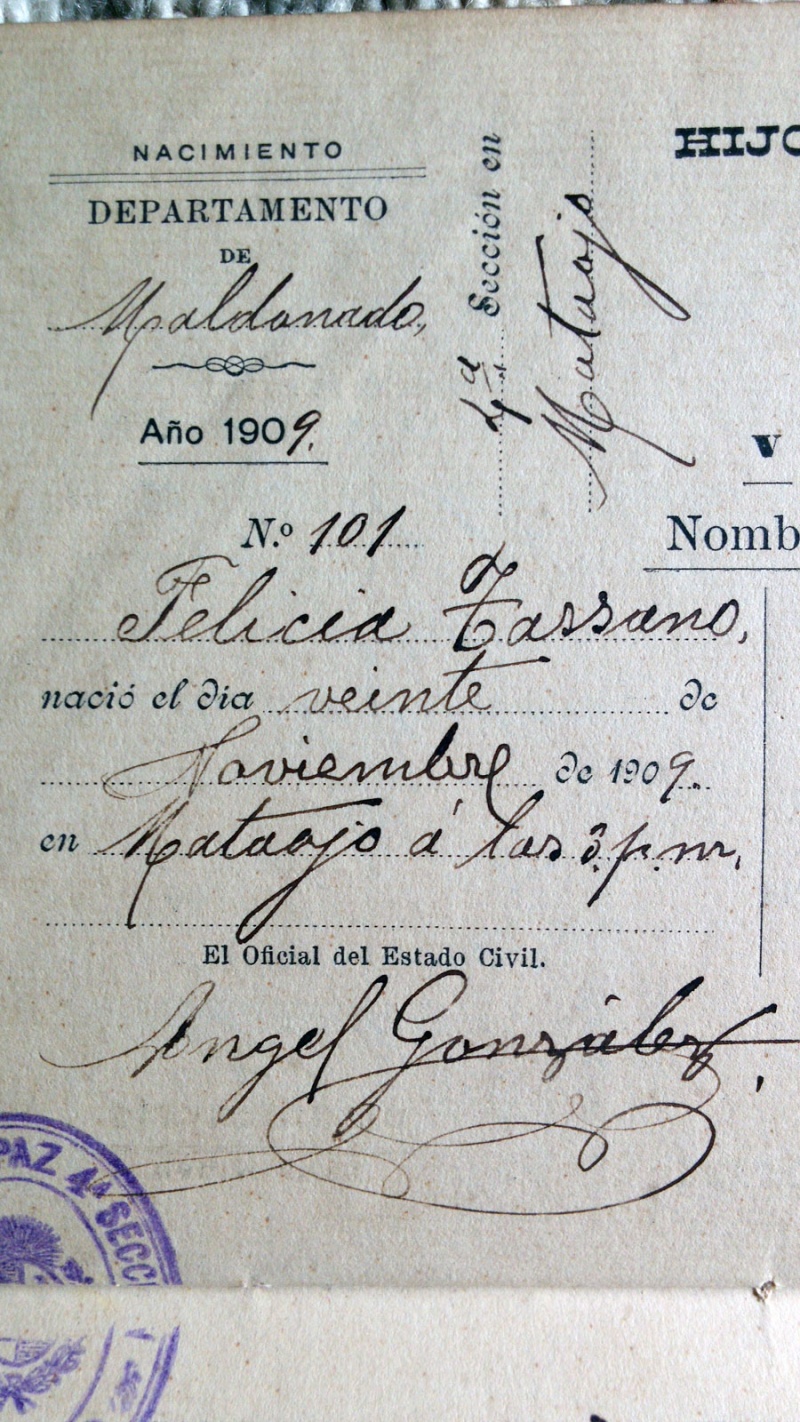 NACIMIENTO
DEPARTAMENTO
DE
Maldonado,
Año 1909.
4ª Sección en
Mataojo
HIJO
V
Nomb
N.º 101
Felicia Tassano,
nació el día veinte de
Noviembre de 1909.
en Mataojo á las 3. p. m.,
El Oficial del Estado Civil.
Angel González.
PAZ 4ª SECCI